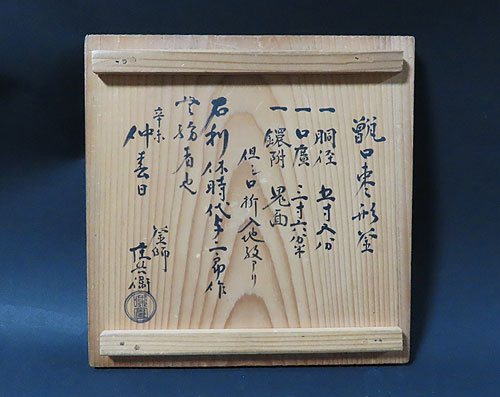 甑口棗形釜
一 胴径 五寸八分
一 口廣 三寸六分半
一 鐶附 鬼面
但シ口折入地紋アリ
右利休時代与二郎作
写珍者也
辛未
仲春日
釜師
庄兵衛